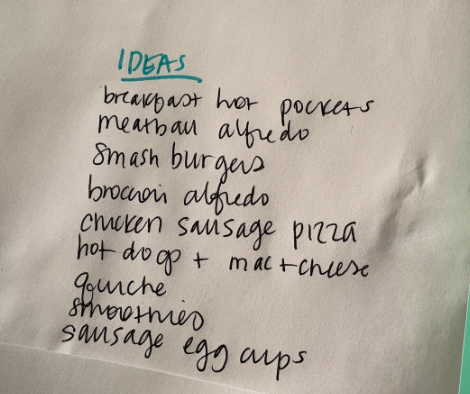 IDEAS
breakfast hot pockets
meatball alfredo
smash burgers
broccoli alfredo
chicken sausage pizza
hot dogs + mac + cheese
quiche
smoothies
sausage egg cups